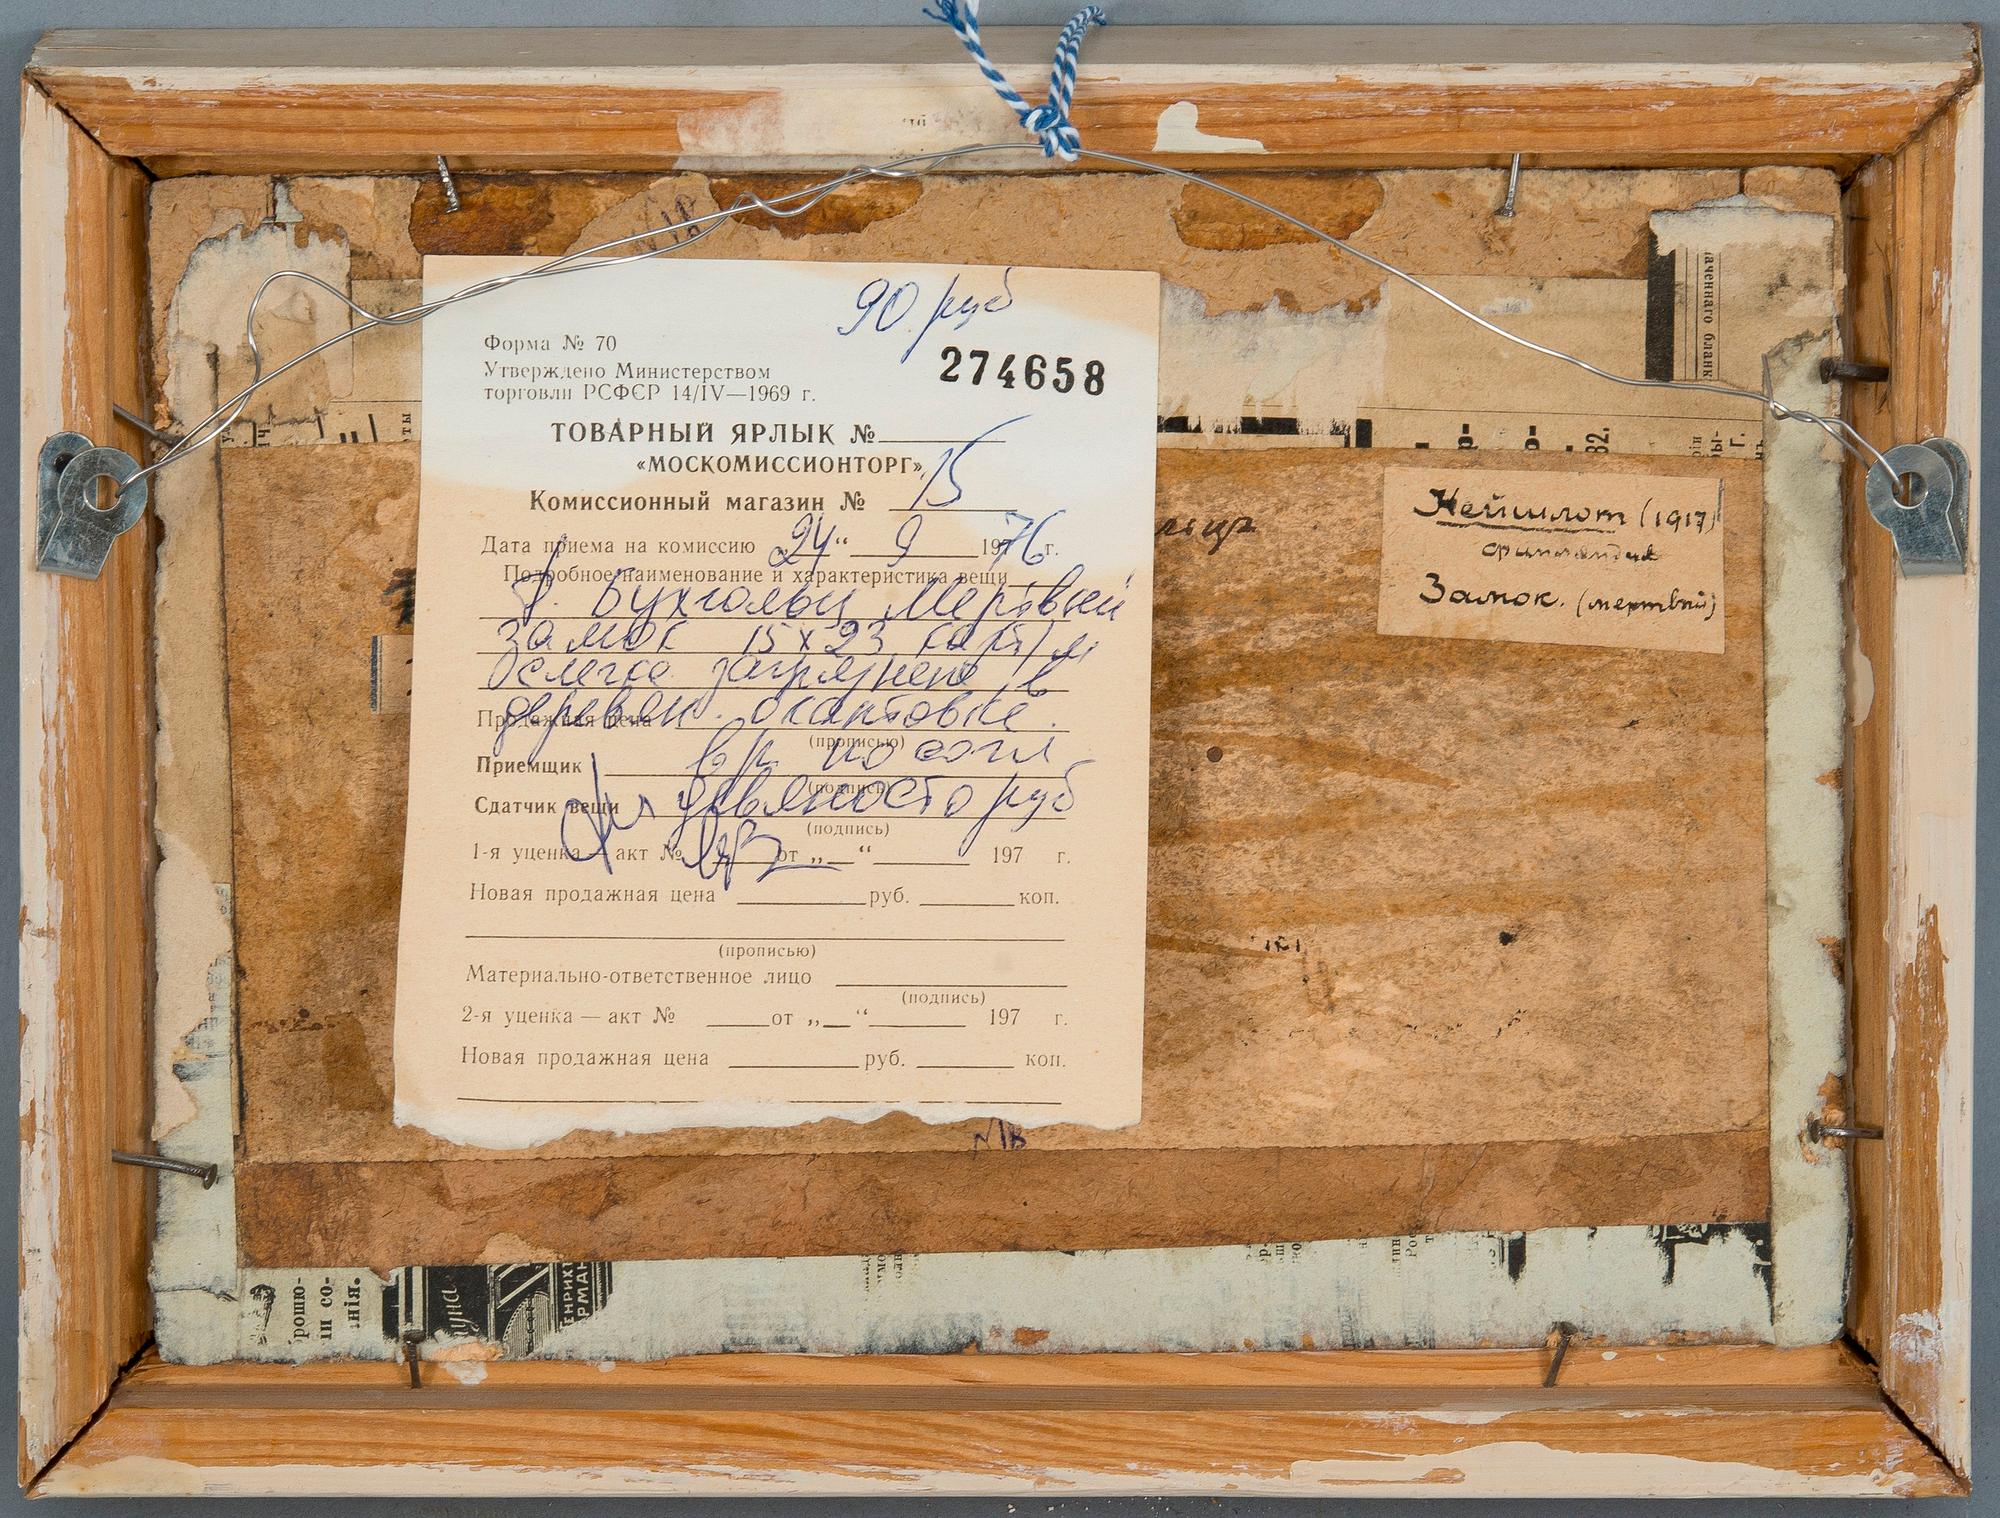 90 руб
274658
Форма № 70
Утверждено Министерством
торговли РСФСР 14/IV—1969 г.
ТОВАРНЫЙ ЯРЛЫК №
«МОСКОМИССИОНТОРГ»
Комиссионный магазин № 15
Дата приема на комиссию „24“ 9 1976 г.
Подробное наименование и характеристика вещи
Бухгольц Мертвый
замок 15х23 карт/м
слегка загрязнено, в
деревян. окантовке.
Продажная цена
(прописью)
вр по согл
Приемщик
(подпись)
девяносто руб
Сдатчик вещи
(подпись)
1-я уценка — акт № от „ “ 197 г.
Новая продажная цена руб. коп.
(прописью)
Материально-ответственное лицо
(подпись)
2-я уценка — акт № от „ “ 197 г.
Новая продажная цена руб. коп.
Нейшлот (1917)
финляндия
Замок. (мертвый)
аченнаго бланк
82.
рошю-
ін со-
нія.
уна
ЕНРИХ
РМАН